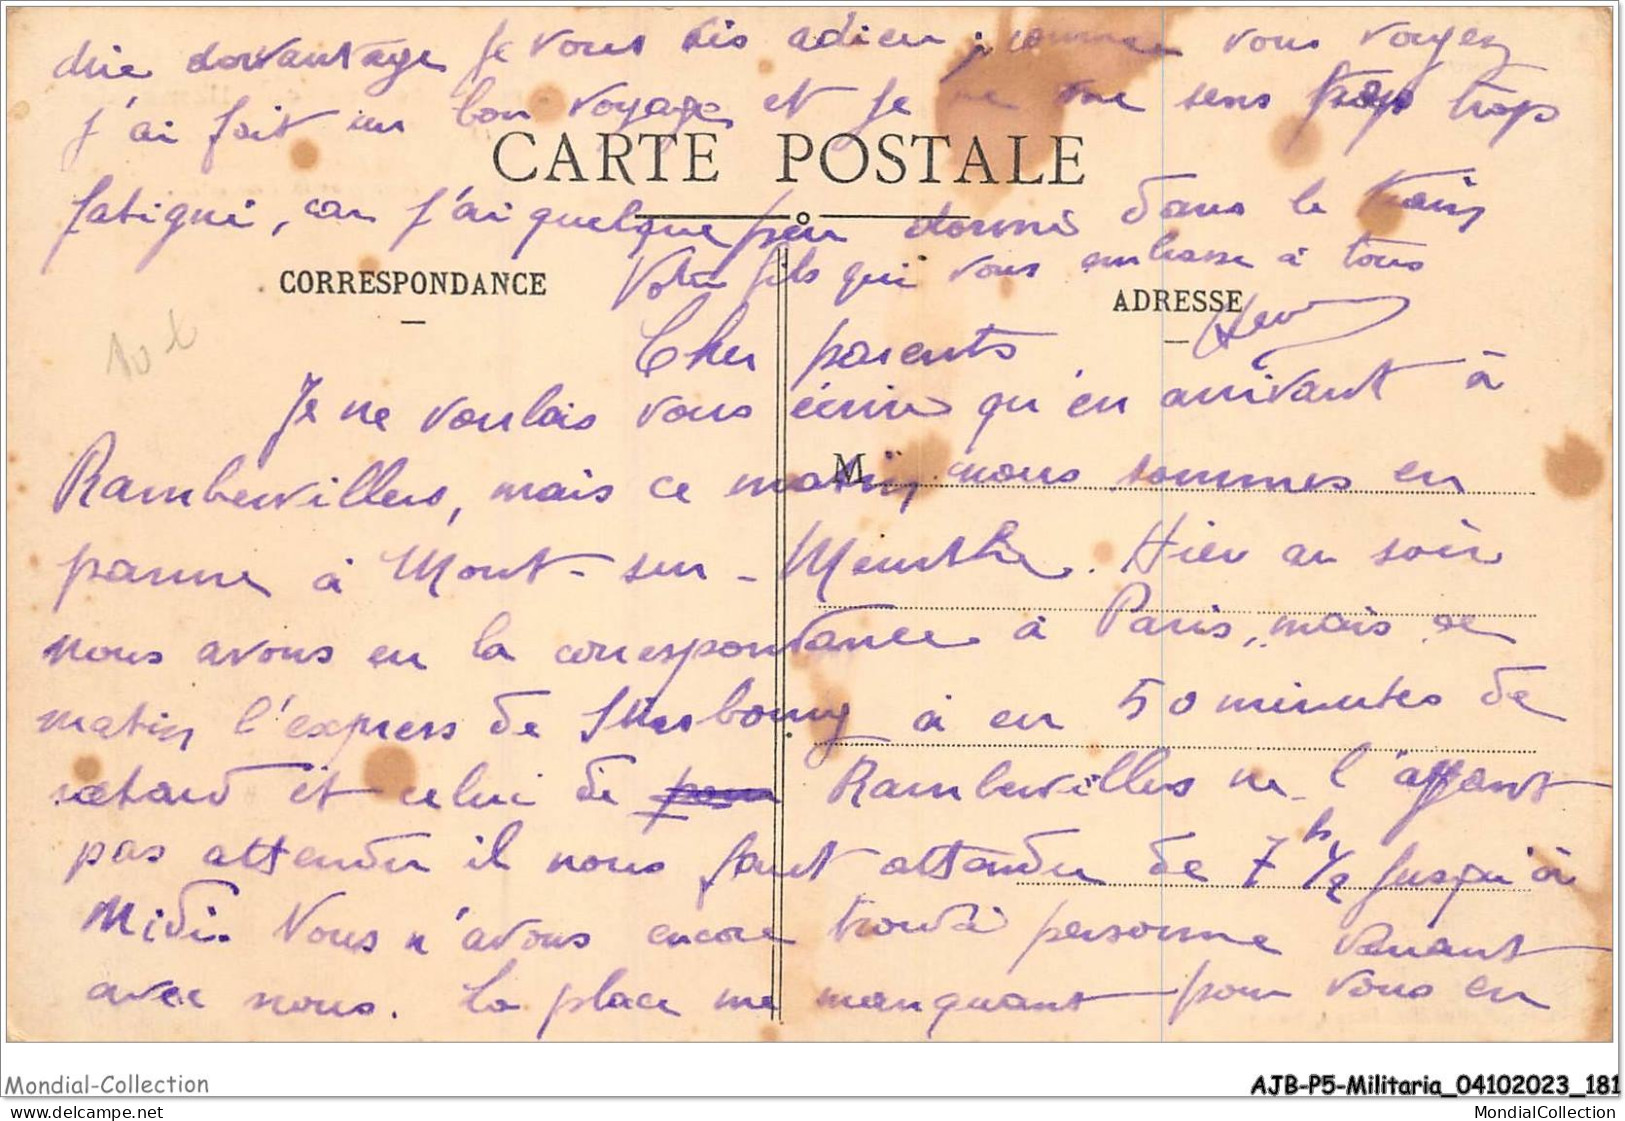 dire davantage je vous dis adieu ; comme vous voyez
j'ai fait un bon voyage et je ne me sens trop
fatigué, car j'ai quelque peu dormi dans le train
Votre fils qui vous embrasse à tous
CARTE POSTALE
CORRESPONDANCE
ADRESSE
Cher parents
Je ne voulais vous écrire qu'en arrivant à
Rambervillers, mais ce matin nous sommes en
M
panne à Mont-sur-Meurthe. Hier au soir
nous avons eu la correspondance à Paris, mais ce
matin l'express de Strasbourg à eu 50 minutes de
retard et celui de Rambervillers ne l'ayant
pas attendu il nous faut attendre de 7h 1/2 jusqu'à
Midi. Nous n'avons encore trouvé personne venant
avec nous. La place me manquant pour vous en
Mondial-Collection
AJB-P5-Militaria_04102023_181
www.delcampe.net
MondialCollection